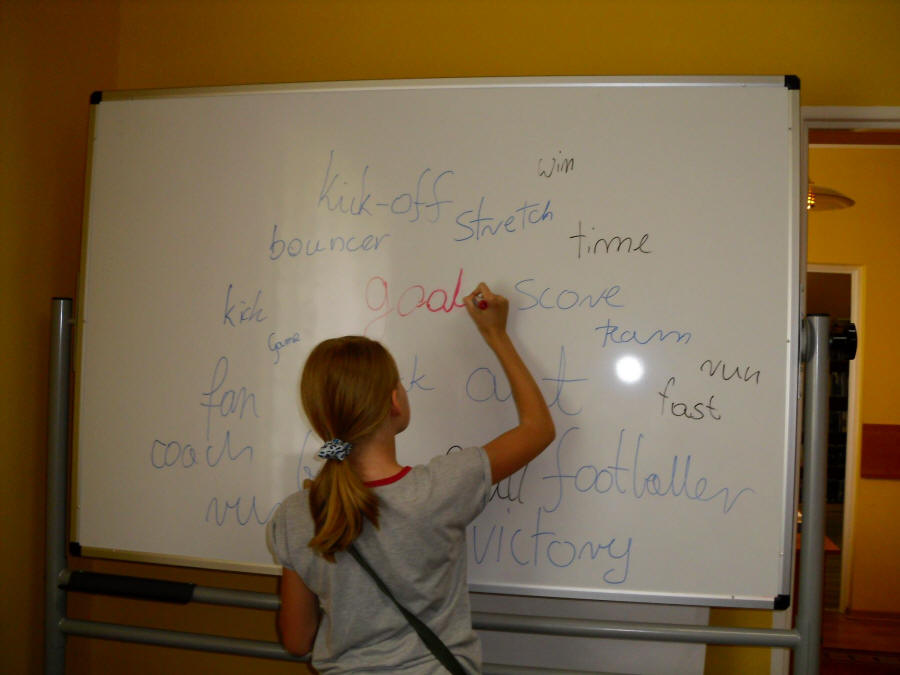 win
kick-off stretch
bouncer time
goal score
kick
Game team
fan run
fast
coach footballer
victory